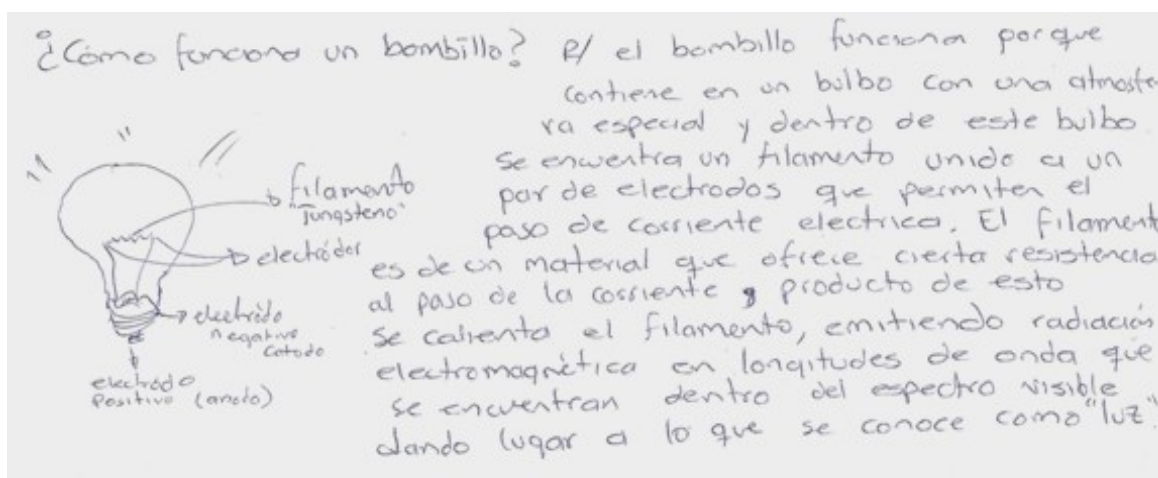 ¿Cómo funciona un bombillo? R/ el bombillo funciona porque
contiene en un bulbo con una atmosfe
ra especial y dentro de este bulbo
se encuentra un filamento unido a un
par de electrodos que permiten el
paso de corriente electrica. El filament
es de un material que ofrece cierta resistencia
al paso de la corriente, producto de esto
se calienta el filamento, emitiendo radiación
electromagnética en longitudes de onda que
se encuentran dentro del espectro visible
dando lugar a lo que se conoce como "luz".
filamento
"Jungsteno"
electródos
electródo
negativo
catodo
electrodo
Positivo (anodo)